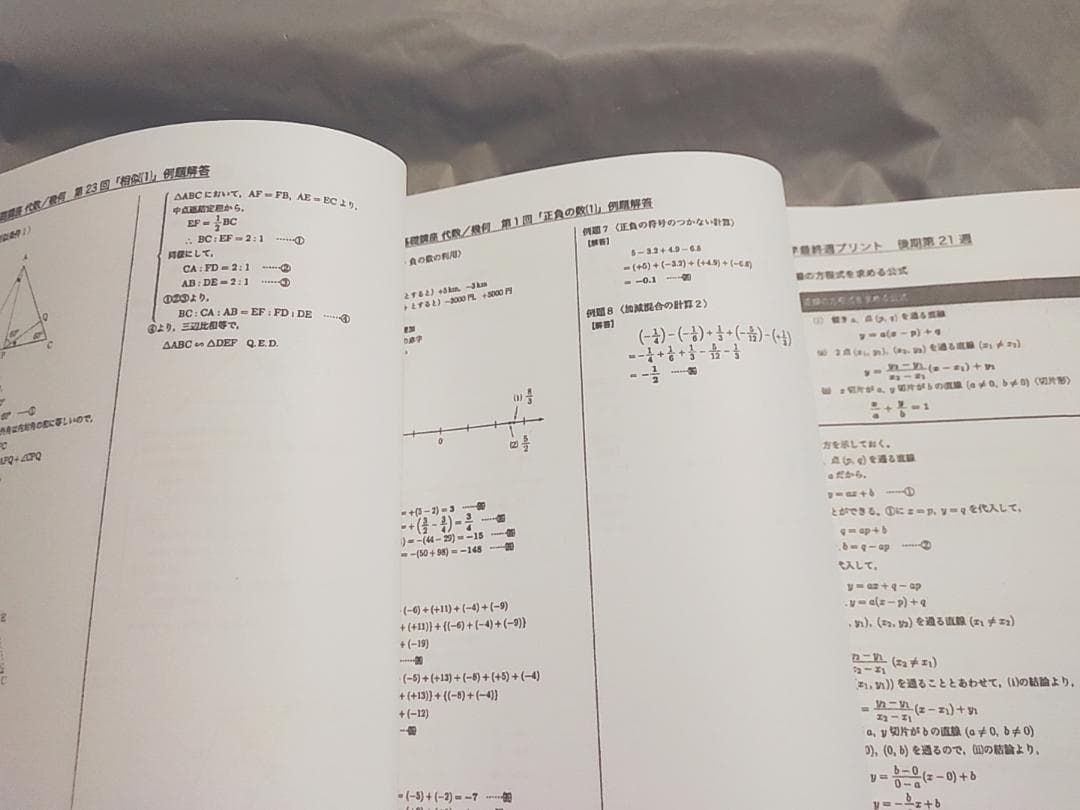 礎講座 代数／幾何 第23回「相似(1)」例題解答
A
Q
60°
60°
P
C
60° ……①
外角は内対角の和に等しいので、
PC
APQ+∠CPQ
E
C
△ABCにおいて，AF＝FB，AE＝ECより，
中点連結定理から，
EF＝1/2 BC
∴ BC：EF＝2：1 ……①
同様にして，
CA：FD＝2：1 ……②
AB：DE＝2：1 ……③
①②③より，
BC：CA：AB＝EF：FD：DE ……④
④より，三辺比相等で，
△ABC∽△DEF Q.E.D.
基礎講座 代数／幾何 第1回「正負の数(1)」例題解答
負の数の利用〉
とすると）+5km，−3km
とすると）−3000円，+5000円
の赤字
(1) 8/3
0
(2) 5/2
=+(5−2)=3 ……答
=+(3/2−3/4)=3/4 ……答
)=−(44−29)=−15 ……答
=−(50+98)=−148 ……答
(−6)+(+11)+(−4)+(−9)
+(+11)}+{(−6)+(−4)+(−9)}
+(−19)
……答
(−5)+(+13)+(−8)+(+5)+(−4)
+(+13)}+{(−8)+(−4)}
+(−12)
……答
=(−5)+(−2)=−7 ……答
例題7〈正負の符号のつかない計算〉
【解答】
5−3.2+4.9−6.8
=(+5)+(−3.2)+(+4.9)+(−6.8)
=−0.1 ……答
例題8〈加減混合の計算2〉
【解答】
(−1/4)−(−1/6)+1/3+(−5/12)−(+1/3)
=−1/4+1/6+1/3−5/12−1/3
=−1/2 ……答
最終週プリント 後期第21週
線の方程式を求める公式
直線の方程式を求める公式
(i) 傾きa，点(p, q)を通る直線
y=a(x−p)+q
(ii) 2点(x₁, y₁)，(x₂, y₂)を通る直線(x₁≠x₂)
y=(y₂−y₁)/(x₂−x₁)(x−x₁)+y₁
(iii) x切片がa，y切片がbの直線(a≠0, b≠0)〈切片形〉
x/a+y/b=1
方を示しておく。
点(p, q)を通る直線
aだから，
y=ax+b ……①
とができる。①にx=p, y=qを代入して，
q=ap+b
b=q−ap ……②
代入して，
y=ax+q−ap
y=a(x−p)+q
, y₁)，(x₂, y₂)を通る直線(x₁≠x₂)
(y₂−y₁)/(x₂−x₁) (x₂≠x₁)
(x₁, y₁))を通ることとあわせて，(i)の結論より，
=(y₂−y₁)/(x₂−x₁)(x−x₁)+y₁
a，y切片がbの直線(a≠0, b≠0)
0)，(0, b)を通るので，(ii)の結論より，
y=(b−0)/(0−a)(x−0)+b
y=−b/a x+b